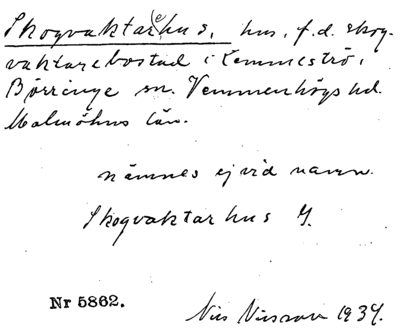 Skogvaktar(e)hus, hus, f.d. skog-
vaktarebostad i Lemmeströ,
Börringe sn. Vemmenhögs hd.
Malmöhus län.
nämnes ej vid namn.
Skogvaktarhus G.
Nr 5862.
Nils Nilsson 1934.